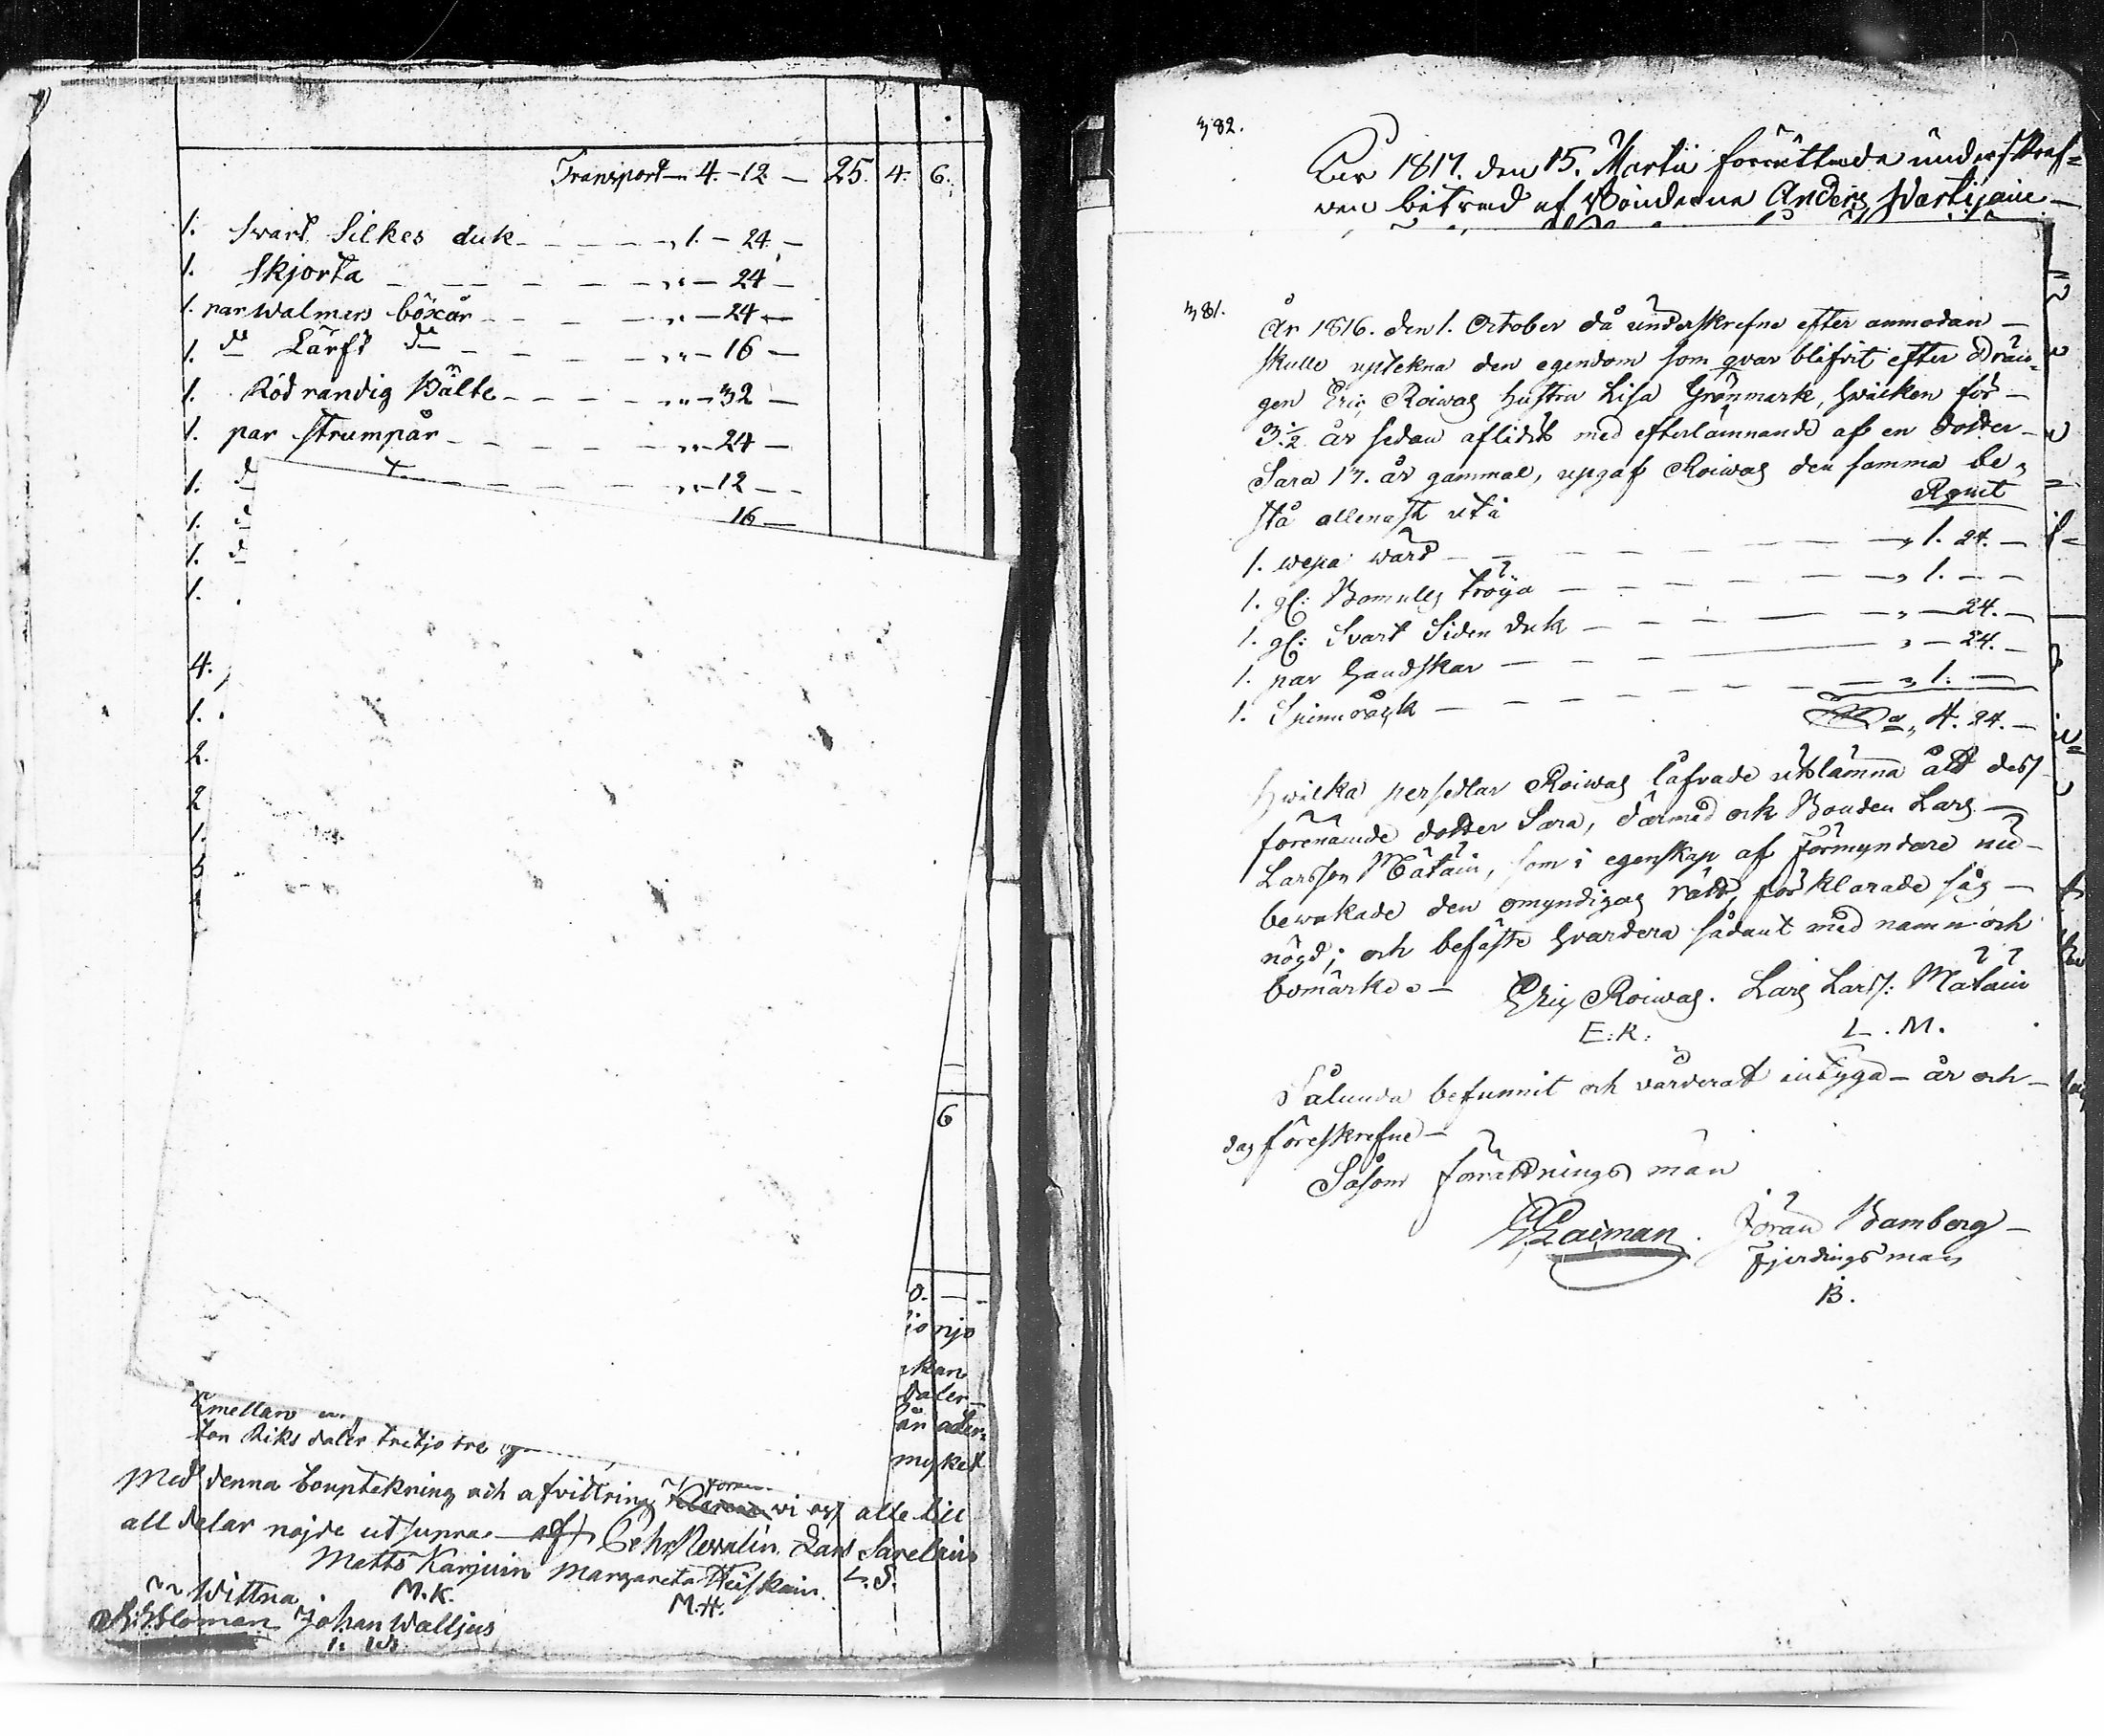 Transport — 4. — 12. — 25. 4. 6.
1. Svart Silkes duk — — — „ 1. — 24. —
1. Skjorta — — — — „ „ — 24 —
1. par walmars böxor — — — „ — 24 —
1. do Lärft do — — — „ „ — 16 —
1. Röd randig Bälte — — — „ „ — 32 —
1. par strumpår — — — „ „ — 24 —
1. d — — — „ „ — 12 —
1. d 16 —
1. d
1.
4.
1.
2.
2
1.
3
6
0. —
mellan
ton Riks daler tretjo tre
myket
Med denna bouptekning och afvittring wi oss alle till
all delar nöjde ut supra — Pehr Lars Sarelain
Matts Karjuin Margareta Huiskain L. S.
Wittna M. K. M. H.
Johan Walljus
382.
År 1817. den 15. Martii förrättade underskref=
ven biträd af Bönderne Anders Partijain —
381.
År 1816. den 1. October då underskrefne efter anmodan —
skulle uptekna den egendom som qvar blifvit efter Drän=
gen Eric Roiwas hustru Lisa Grönmark, hvilken för —
3. 1/2 år sedan aflidit med efterlämnande af en dotter —
Sara 17. år gammal, upgaf Roiwas den samma be=
stå allenast uti Rgnit
1. wepa ward — — — „ 1. 24. —
1. gl: Bomulls tröya — — — „ 1. — —
1. gl: Svart Siden duk — — — „ — 24. —
1. par handskar — — — „ — 24. —
1. Spinnråck — — — „ 1. —
Sa „ 4. 24. —
Hwilka persedlar Roiwas låfvade utlämna åt dess
förenämde dotter Sara, därmed ock Bonden Lars —
Larsson Mätäin, som i egenskap af Förmyndare nu —
bewakade den omyndigas rätt, förklarade sig —
nögd; och befäste hvardera sådant med namn och
bomärke. — Eric Roiwas. Lars Lars: Mätäin
E: R: L. M.
Sålunda befunnit och värderat intyga — år och —
dag föreskrefne —
Såsom förrättnings män
Laiman. Jöran Bamberg —
Fjerdingsman
B.